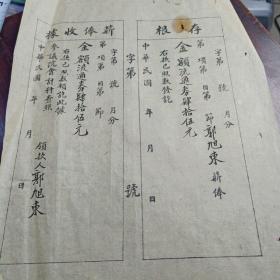 存根
字第 號 月分
第 項第 目第 節 郭旭東 薪俸
金額流通券肆拾伍元
右款已照數領訖
中華民國 年 月 日
字第 號
薪俸收據
字第 號 月分
第 項第 目第 節
金額流通券肆拾伍元
右款已照數領訖此據
參議院會計科台照
領款人 郭旭東
中華民國 年 月 日